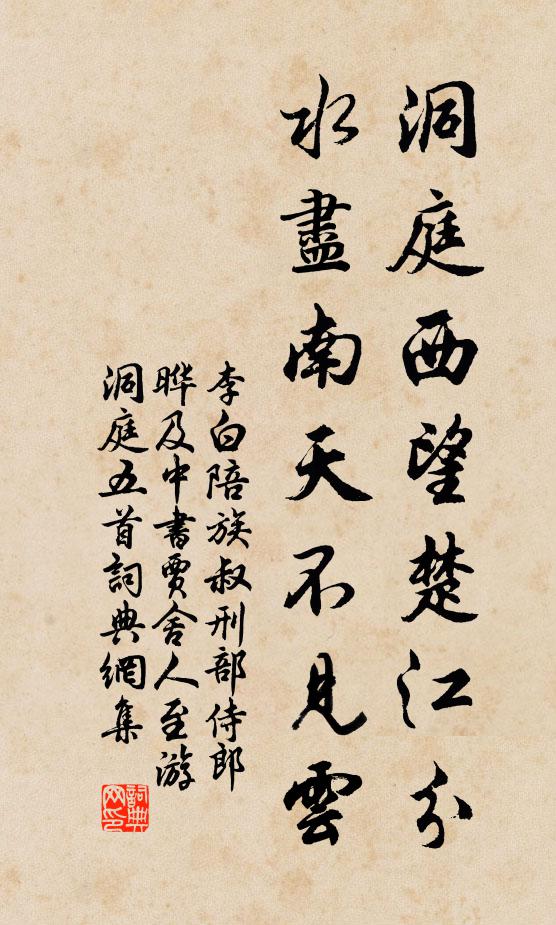 洞庭西望楚江分
水盡南天不見雲
李白陪族叔刑部侍郎
晔及中書賈舍人至游
洞庭五首詞典網集
詞典
网印